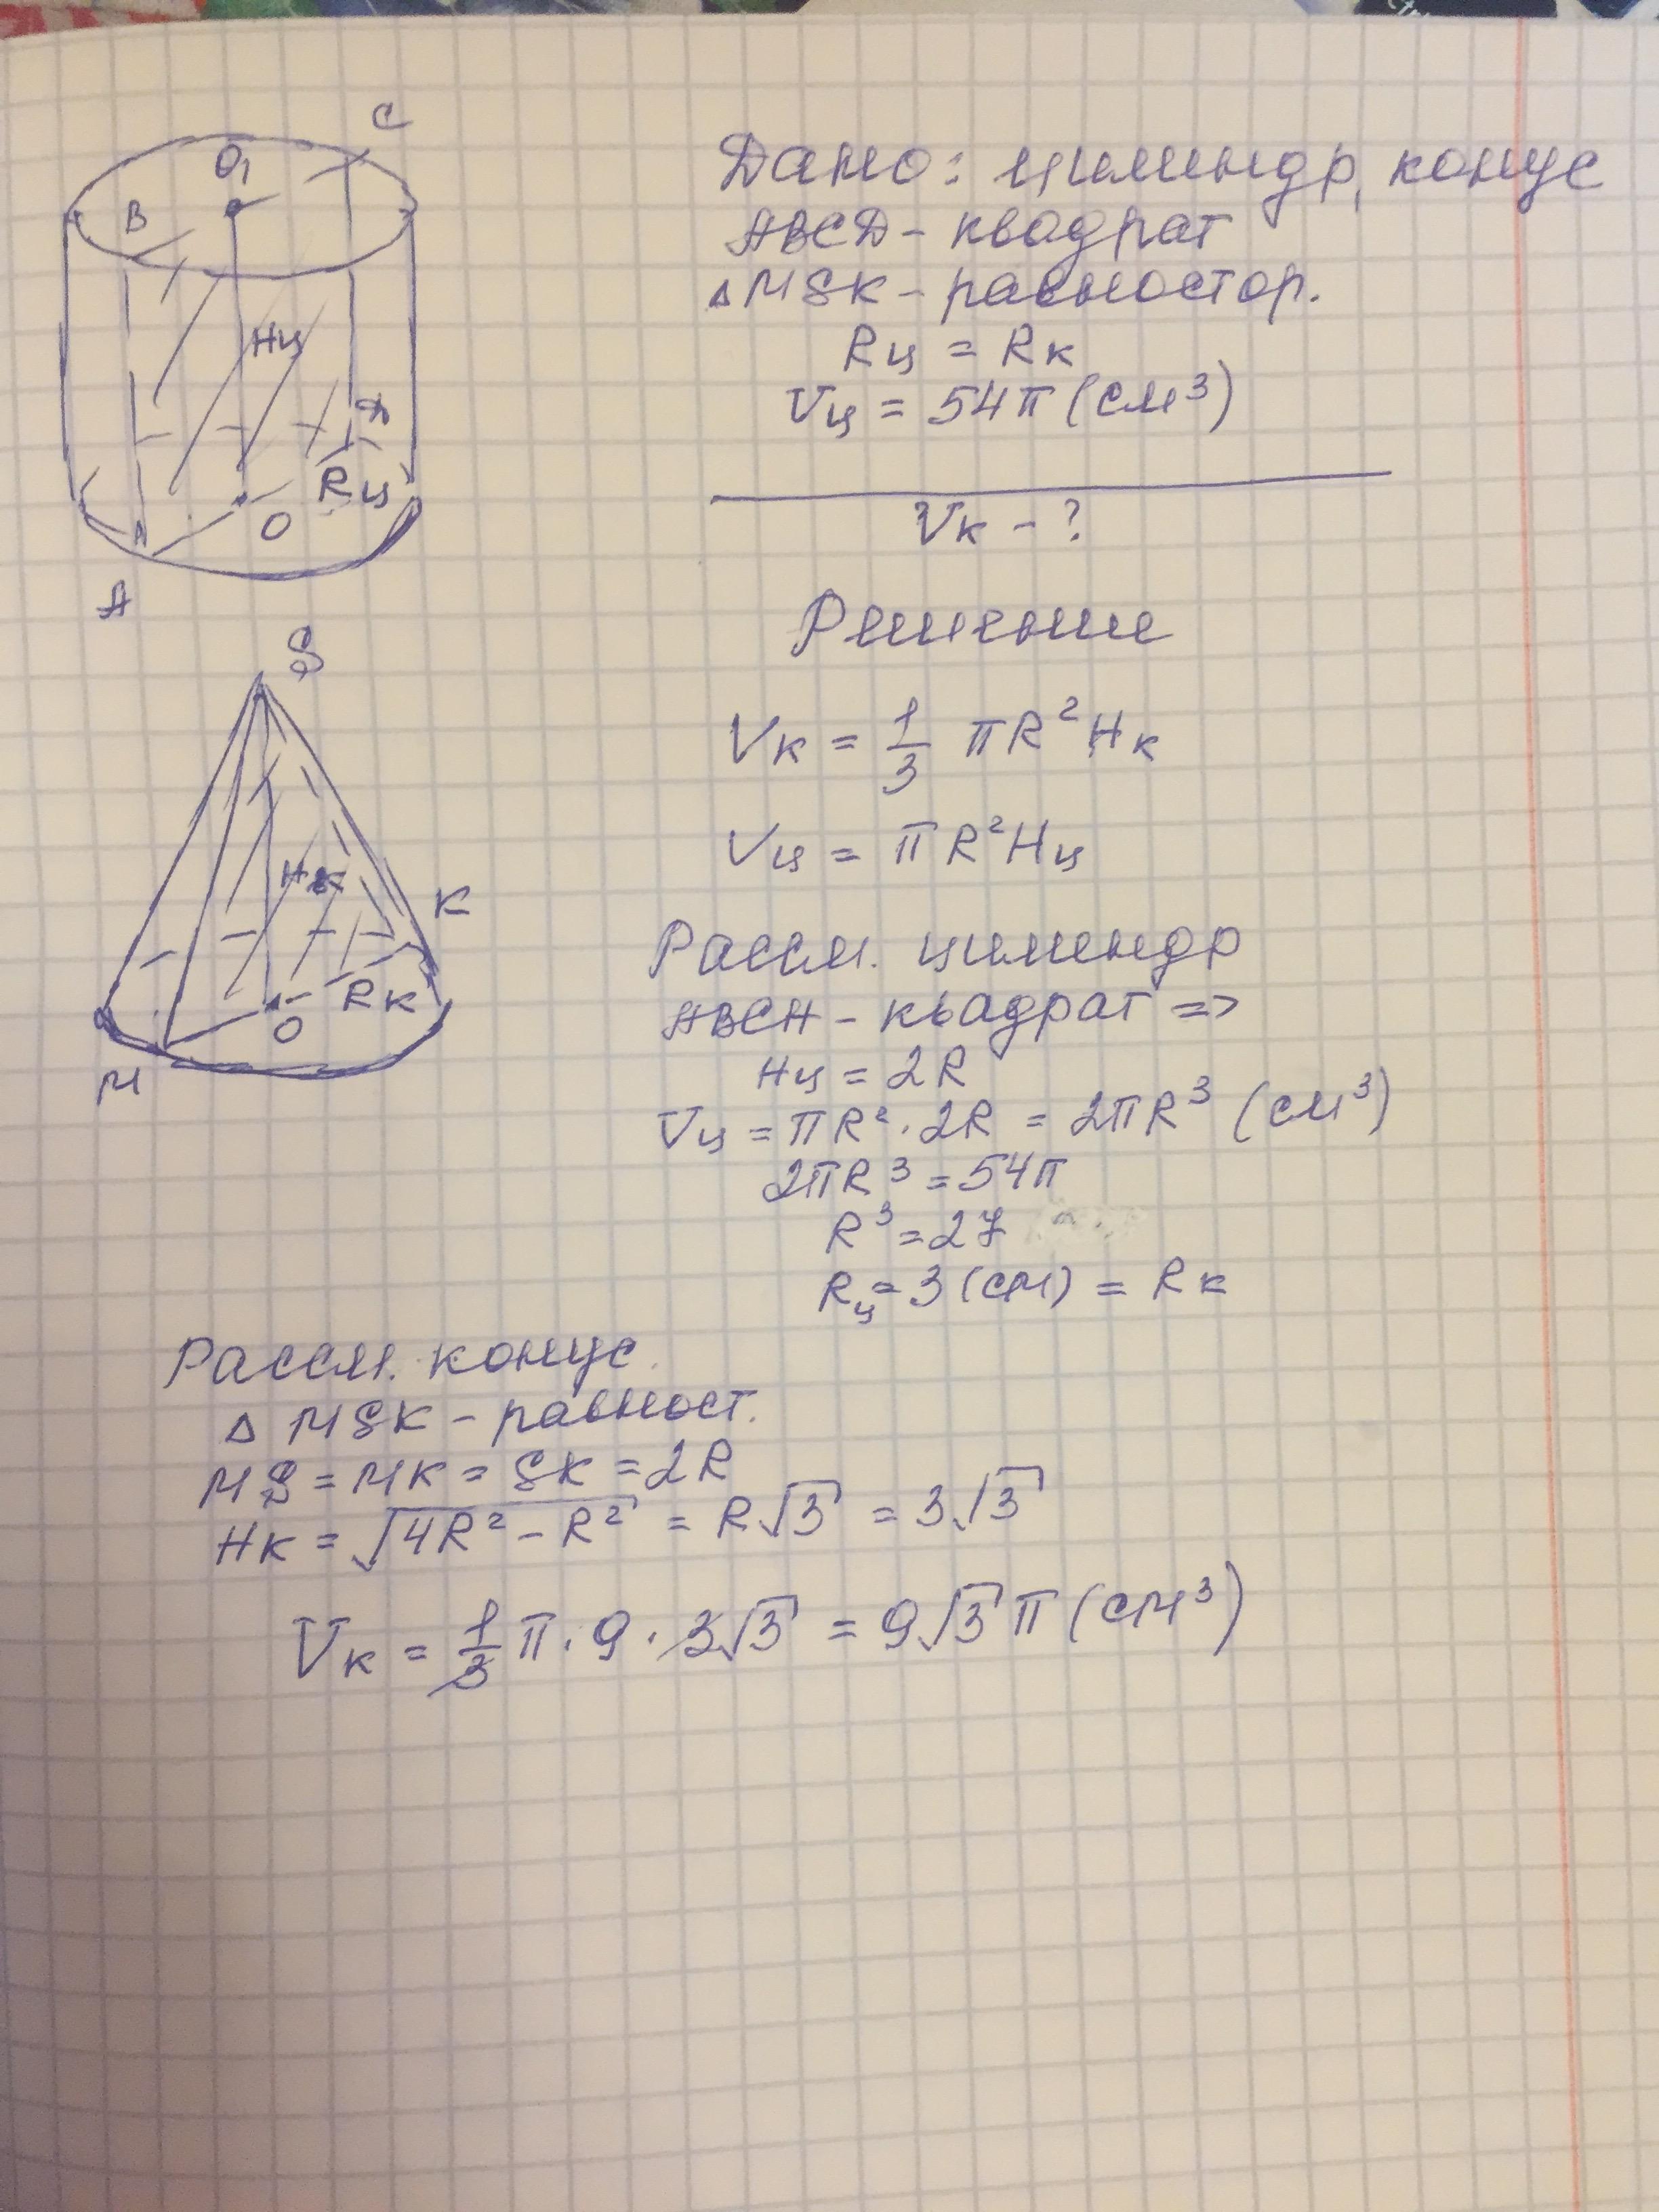 C
O₁
B
Hц
Д
Rц
O
A
A
S
Hк
K
Rк
O
M
Дано: цилиндр, конус
ABCД - квадрат
△MSK - равностор.
Rц = Rк
Vц = 54π (см³)
Vк - ?
Решение
Vк = 1/3 πR²Hк
Vц = πR²Hц
Рассм. цилиндр
ABCД - квадрат =>
Hц = 2R
Vц = πR²·2R = 2πR³ (см³)
2πR³ = 54π
R³ = 27
Rц = 3 (см) = Rк
Рассм. конус.
△ MSK - равност.
MS = MK = SK = 2R
Hк = √(4R² - R²) = R√3 = 3√3
Vк = 1/3 π · 9 · 3√3 = 9√3 π (см³)